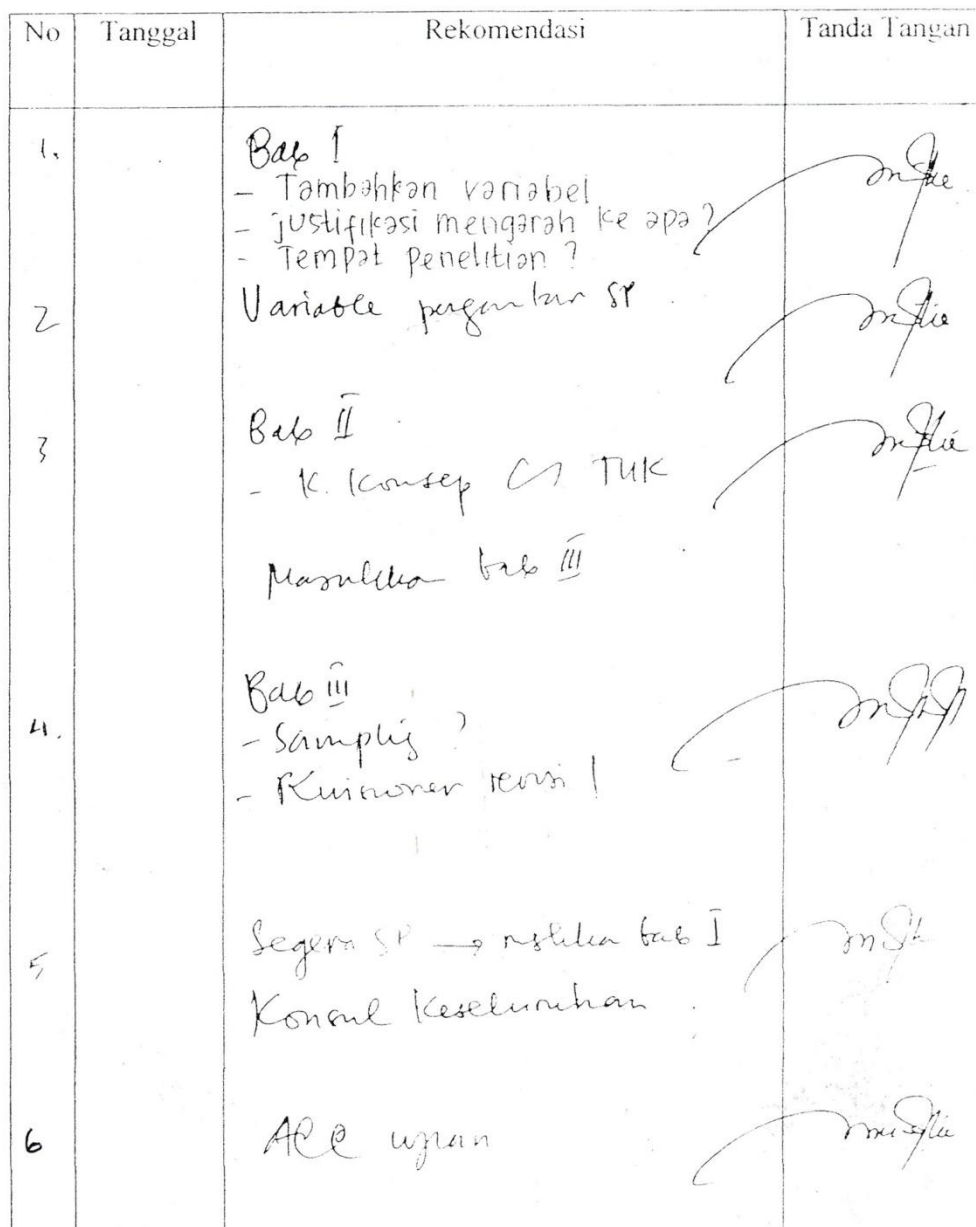 No Tanggal Rekomendasi Tanda Tangan
1. Bab I
- Tambahkan variabel
- justifikasi mengarah ke apa?
- Tempat penelitian?
2 Variable SP
3 Bab II
- K. Konsep TUK
bab III
4. Bab III
- Sampling?
- Kuisioner revisi!
5 Segera SP → bab I
Konsul Keseluruhan.
6 ACC ujian